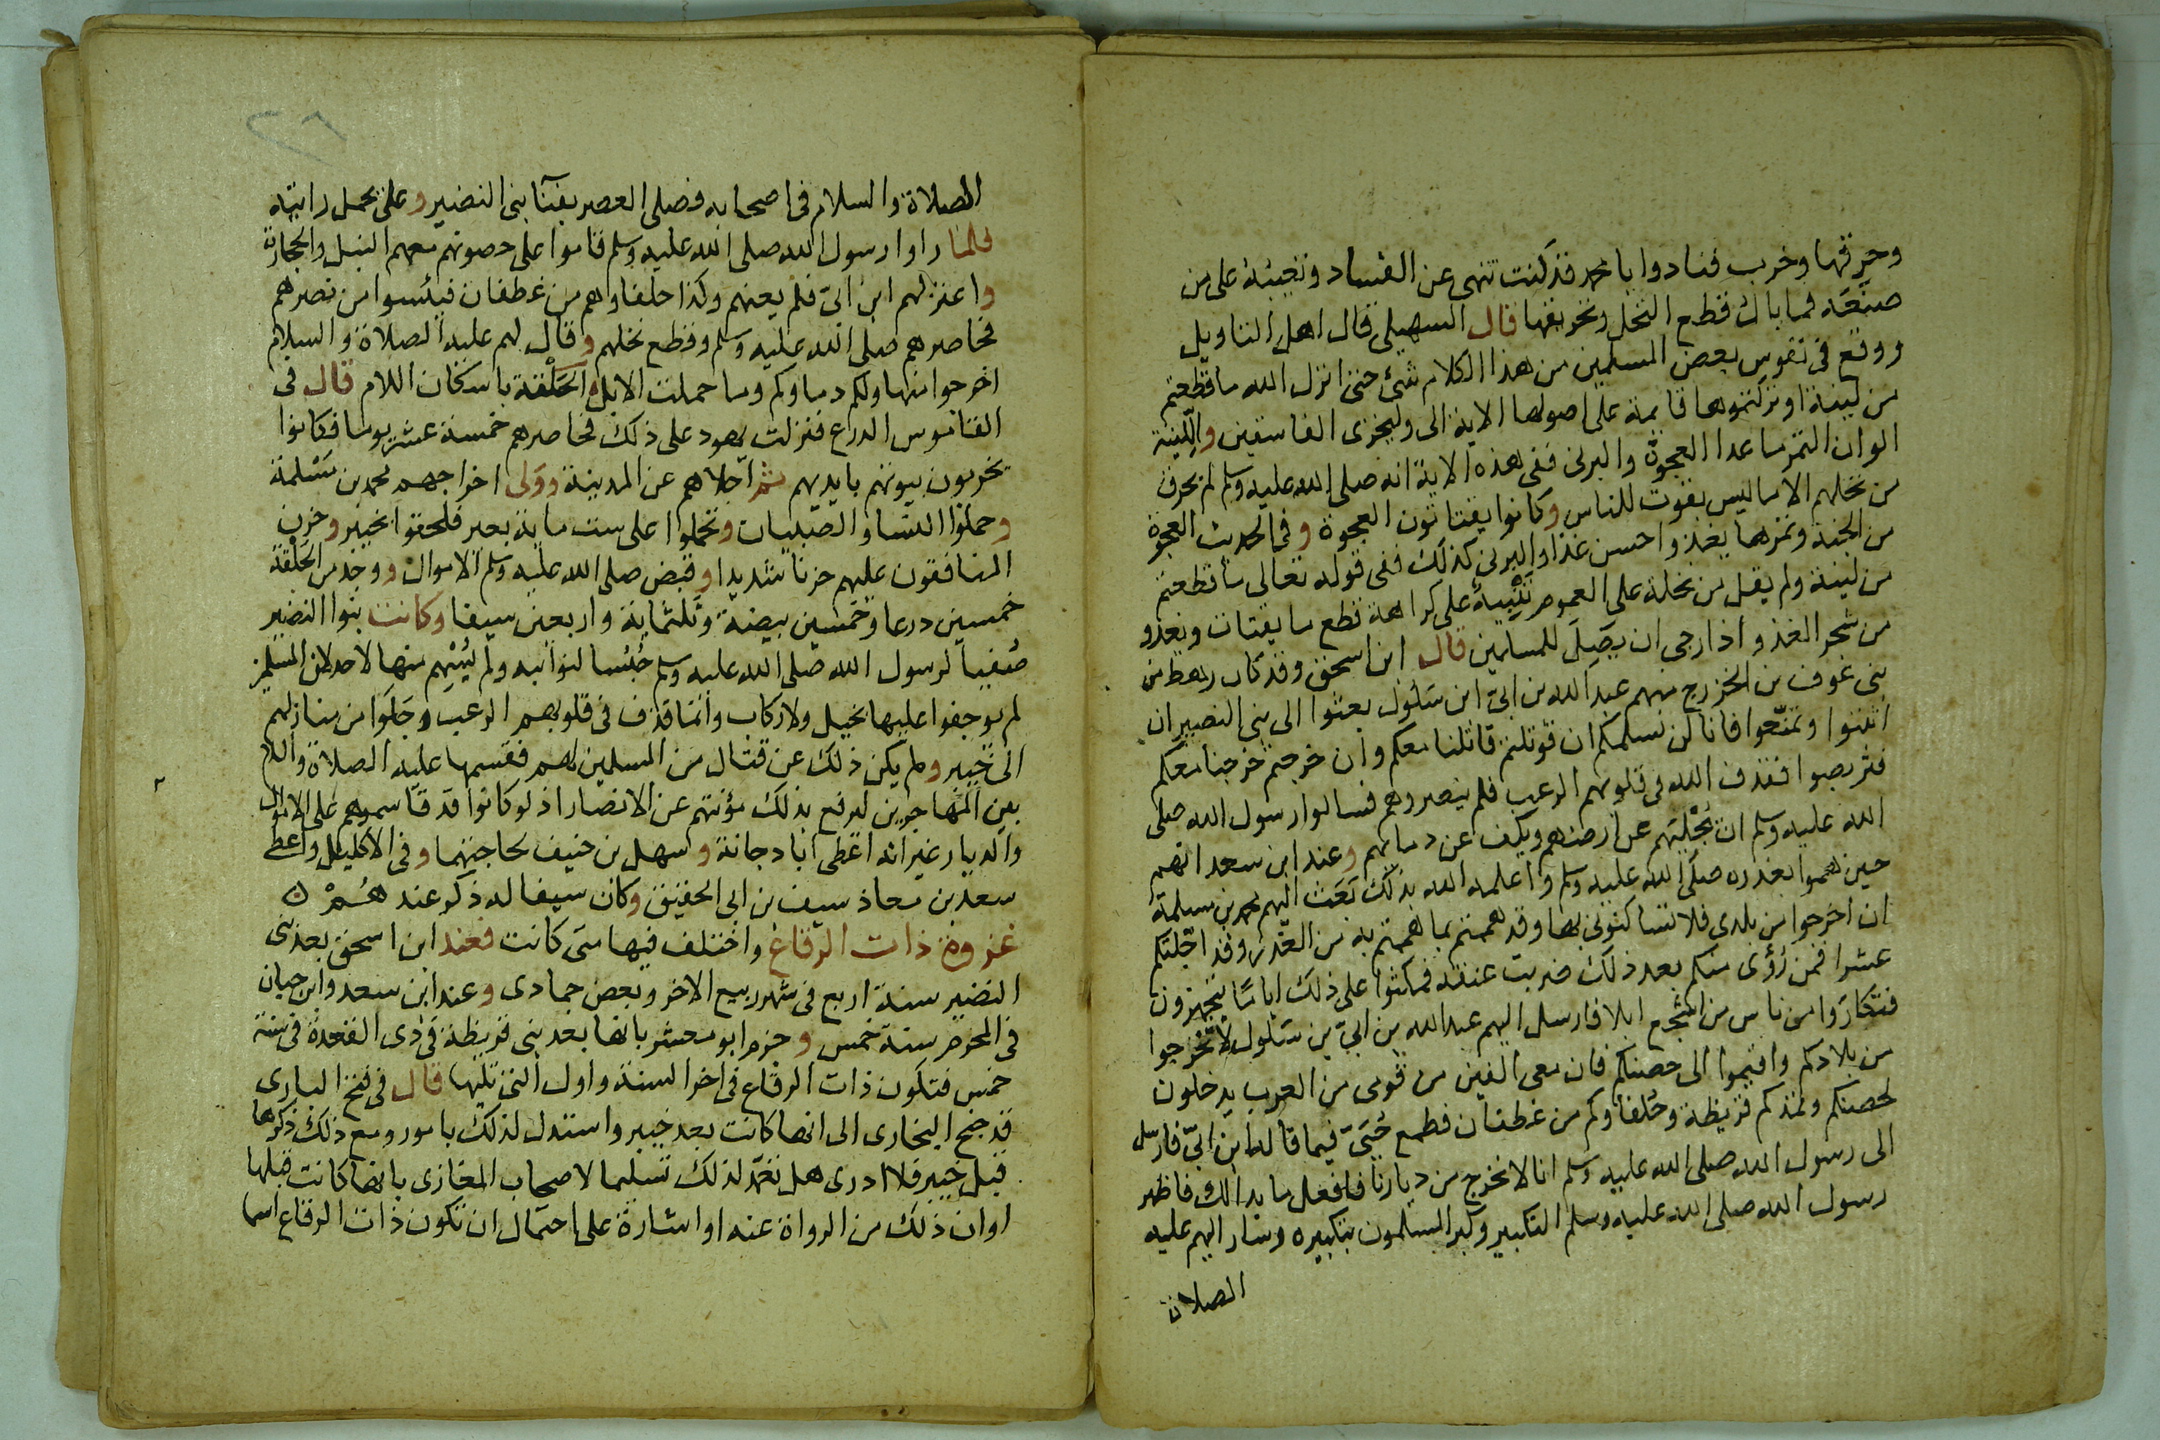 وحرقها وخرب فنادوا يا محمد قد كنت تنهى عن الفساد وتعيبه على من
صنعه فما بال قطع النخل وتحريقها قال السهيلى قال اهل التاويل
ووقع فى نفوس بعض المسلمين من هذا الكلام شئ حتى انزل الله ما قطعتم
من لينة او تركتموها قايمة على اصولها الاية الى وليخزى الفاسقين واللينة
الوان التمر ما عدا العجوة والبرنى ففى هذه الاية انه صلى الله عليه وسلم لم يحرق
من نخلهم الا ما ليس بقوت للناس وكانوا يقتاتون العجوة وفى الحديث العجوة
من الجنة وتمرها يغذو احسن غذا والبرنى كذلك ففى قوله تعالى ما قطعتم
من لينة ولم يقل من نخلة على العموم تنبيه على كراهة قطع ما يقتات ويغذو
من شجر الغذو اذا رجى ان يصل للمسلمين قال ابن اسحق وقد كان رهط من
بنى عوف بن الخزرج منهم عبد الله بن ابىّ ابن سلول بعثوا الى بنى النضير ان
اثبتوا وتمنّعوا فانا لن نسلمكم ان قوتلتم قاتلنا معكم وان خرجتم خرجنا معكم
فتربصوا فقذف الله فى قلوبهم الرعب فلم ينصروهم فسالوا رسول الله صلى
الله عليه وسلم ان يجليهم عن ارضهم ويكف عن دمائهم وعند ابن سعد انهم
حين هموا بغدره صلى الله عليه وسلم واعلمه الله بذلك بعث اليهم محمد بن مسلمة
ان اخرجوا من بلدى فلا تساكنونى بها وقد هممتم بما هممتم به من الغدر وقد اجّلتكم
عشرا فمن رؤى منكم بعد ذلك ضربت عنقه فمكثوا على ذلك اياما يتجهزون
فتكاروا من ناس من اشجع ابلا فارسل اليهم عبد الله بن ابىّ بن سلول لا تخرجوا
من بلادكم واقيموا الى حصنكم فان معى الفين من قومى من العرب يدخلون
لحصنكم وتمدكم قريظة وحلفاوكم من غطفان فطمع حيىّ فيما قاله ابن ابىّ فارسل
الى رسول الله صلى الله عليه وسلم انا لا نخرج من ديارنا فافعل ما بدالك فاظهر
رسول الله صلى الله عليه وسلم التكبير وكبر المسلمون بتكبيره وسار اليهم عليه
الصلاة
٢٨
الصلاة والسلام فى اصحابه فصلى العصر بفنا بنى النضير وعلى يحمل رايته
فلما راوا رسول الله صلى الله عليه وسلم قاموا على حصونهم معهم النبل والحجارة
واعتزلهم ابن ابىّ فلم يعنهم وكذا حلفاوهم من غطفان فيئسوا من نصرهم
فحاصرهم صلى الله عليه وسلم وقطع نخلهم وقال لهم عليه الصلاة والسلام
اخرجوا منها ولكم دماوكم وما حملت الابل والحلْقة باسكان اللام قال فى
القاموس الدراع فنزلت يهود على ذلك فحاصرهم خمسة عشر يوما فكانوا
يخربون بيوتهم بايديهم ثم اجلاهم عن المدينة وولى اخراجهم محمد بن مسلمة
وحملوا النسا والصبيان وتحملوا على ست ماية بعير فلحقوا بخيبر وحزن
المنافقون عليهم حزنا شديدا وقبض صلى الله عليه وسلم الاموال ووجد من الحلقة
خمسين درعا وخمسين بيضة وثلثماية واربعين سيفا وكانت بنوا النضير
صفيا لرسول الله صلى الله عليه وسلم حُبُسا لنوائبه ولم يُسْهِم منها لاحد لان المسلمين
لم يوجفوا عليها بخيل ولا ركاب وانما قذف فى قلوبهم الرعب وجلوا من منازلهم
الى خيبر ولم يكن ذلك عن قتال من المسلمين لهم فقسمها عليه الصلاة والسلام
بين المهاجرين ليرفع بذلك مؤنتهم عن الانصار اذ لو كانوا قد قاسموهم على الاموال
والديار غير انه اعطى ابا دجانة وسهل بن حنيف لحاجتهما وفى الاكليل واعطى
سعد بن معاذ سيف بن ابى الحقيق وكان سيفا له ذكر عند هُمْ ۞
غزوة ذات الرقاع واختلف فيها متى كانت فعند ابن اسحق بعد بنى
النضير سنة اربع فى شهر ربيع الاخر وبعض جمادى وعند ابن سعد وابن حبان
فى المحرم سنة خمس وجزم ابو معشر بانها بعد بنى قريظة فى ذى القعدة فى سنة
خمس فتكون ذات الرقاع فى اخر السنة واول التى تليها قال فى فتح البارى
قد جنح البخارى الى انها كانت بعد خيبر واستدل لذلك بامور ومع ذلك ذكرها
قبل خيبر فلا ادرى هل تعمّد لذلك تسليما لاصحاب المغازى بانها كانت قبلها
او ان ذلك من الرواة عنه او اشارة على احتمال ان تكون ذات الرقاع اسما